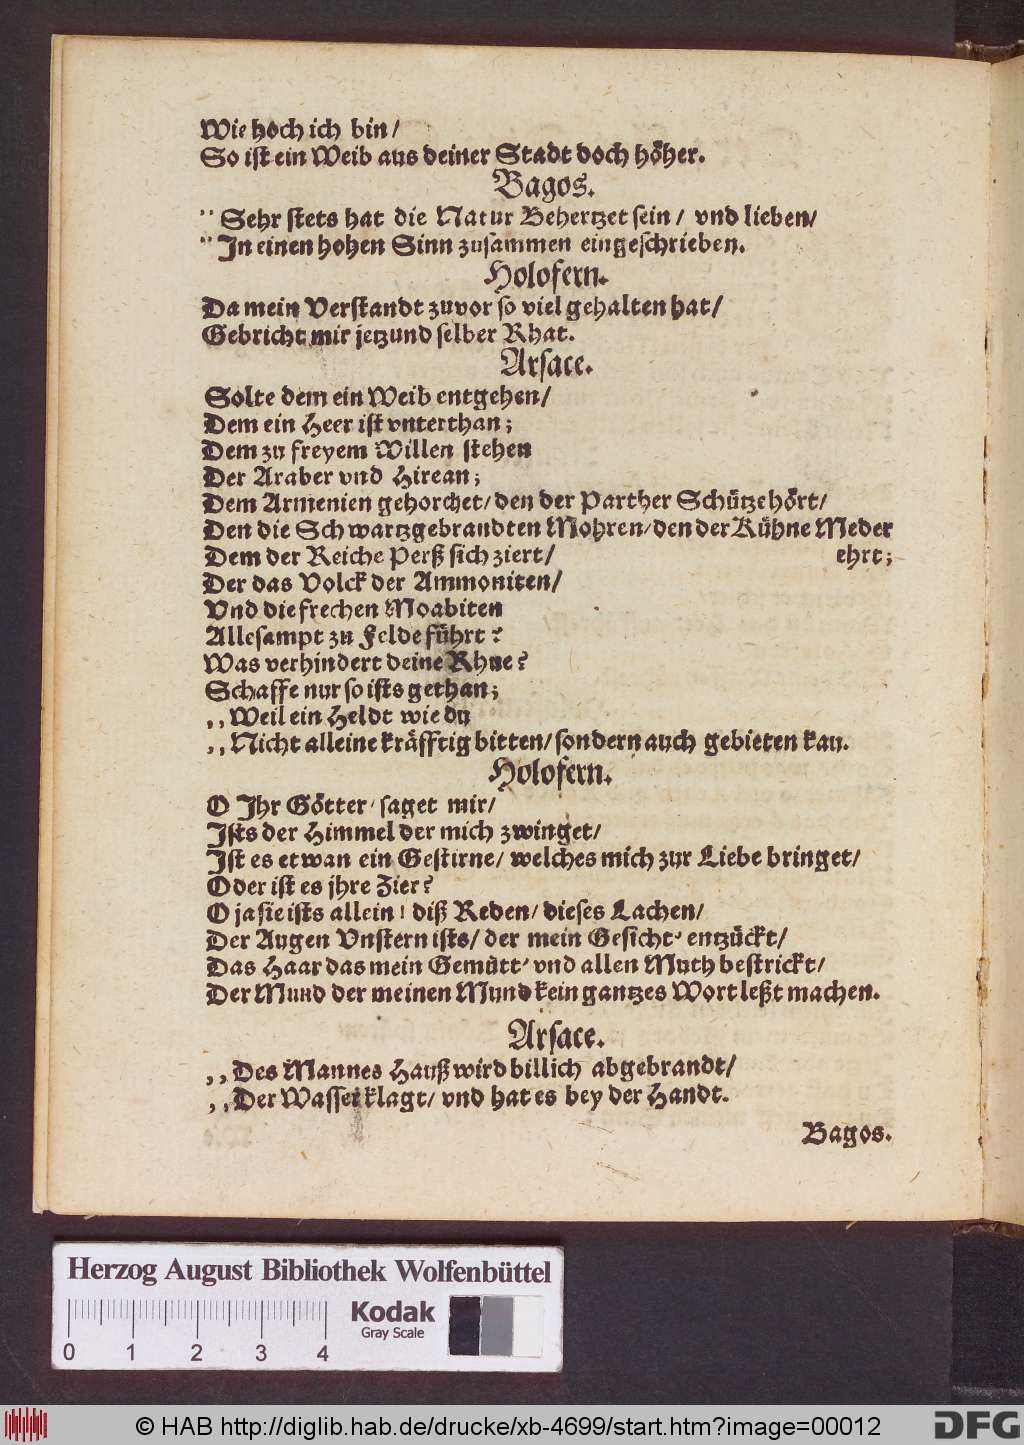 Wie hoch ich bin/
So ist ein Weib aus deiner Stadt doch höher.
Bagos.
" Sehr stets hat die Natur Behertzet sein/ vnd lieben/
" In einen hohen Sinn zusammen eingeschrieben.
Holofern.
Da mein Verstandt zuvor so viel gehalten hat/
Gebricht mir jetzund selber Rhat.
Arsace.
Solte dem ein Weib entgehen/
Dem ein Heer ist vnterthan;
Dem zu freyem Willen stehen
Der Araber vnd Hirean;
Dem Armenien gehorchet/ den der Parther Schütze hört/
Den die Schwartzgebrandten Mohren/ den der Kühne Meder
Dem der Reiche Perß sich ziert/ ehrt;
Der das Volck der Ammoniten/
Vnd die frechen Moabiten
Allesampt zu Felde führt?
Was verhindert deine Rhue?
Schaffe nur so ists gethan;
,,Weil ein Heldt wie du
,,Nicht alleine kräfftig bitten/ sondern auch gebieten kan.
Holofern.
O Ihr Götter/ saget mir/
Ists der Himmel der mich zwinget/
Ist es etwan ein Gestirne/ welches mich zur Liebe bringet/
Oder ist es jhre Zier?
O ja sie ists allein! diß Reden/ dieses Lachen/
Der Augen Vnstern ists/ der mein Gesicht/ entzückt/
Das Haar das mein Gemütt/ vnd allen Muth bestrickt/
Der Mund der meinen Mund kein gantzes Wort leßt machen.
Arsace.
,,Des Mannes Hauß wird billich abgebrandt/
,,Der Wasser klagt/ vnd hat es bey der Handt.
Bagos.
Herzog August Bibliothek Wolfenbüttel
Kodak
Gray Scale
0 1 2 3 4
© HAB http://diglib.hab.de/drucke/xb-4699/start.htm?image=00012
DFG